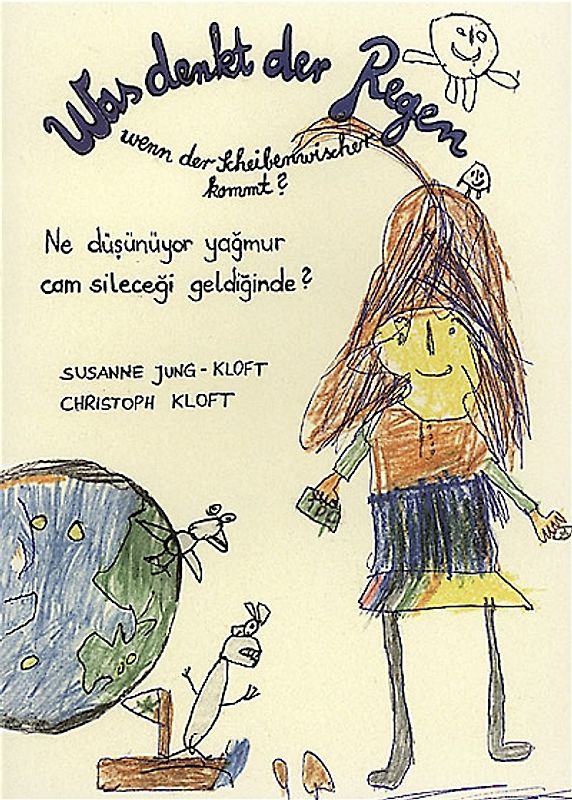 Was denkt der Regen
wenn der Scheibenwischer
kommt?
Ne düşünüyor yağmur
cam sileceği geldiğinde?
SUSANNE JUNG-KLOFT
CHRISTOPH KLOFT